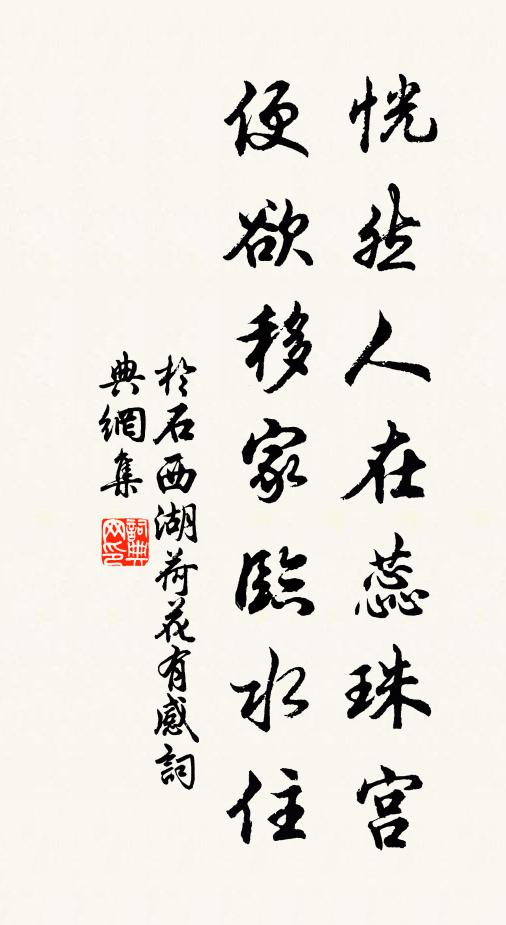 恍然人在蕊珠宫
便欲移家臨水住
於石西湖荷花有感詞
典網集
詞典網印